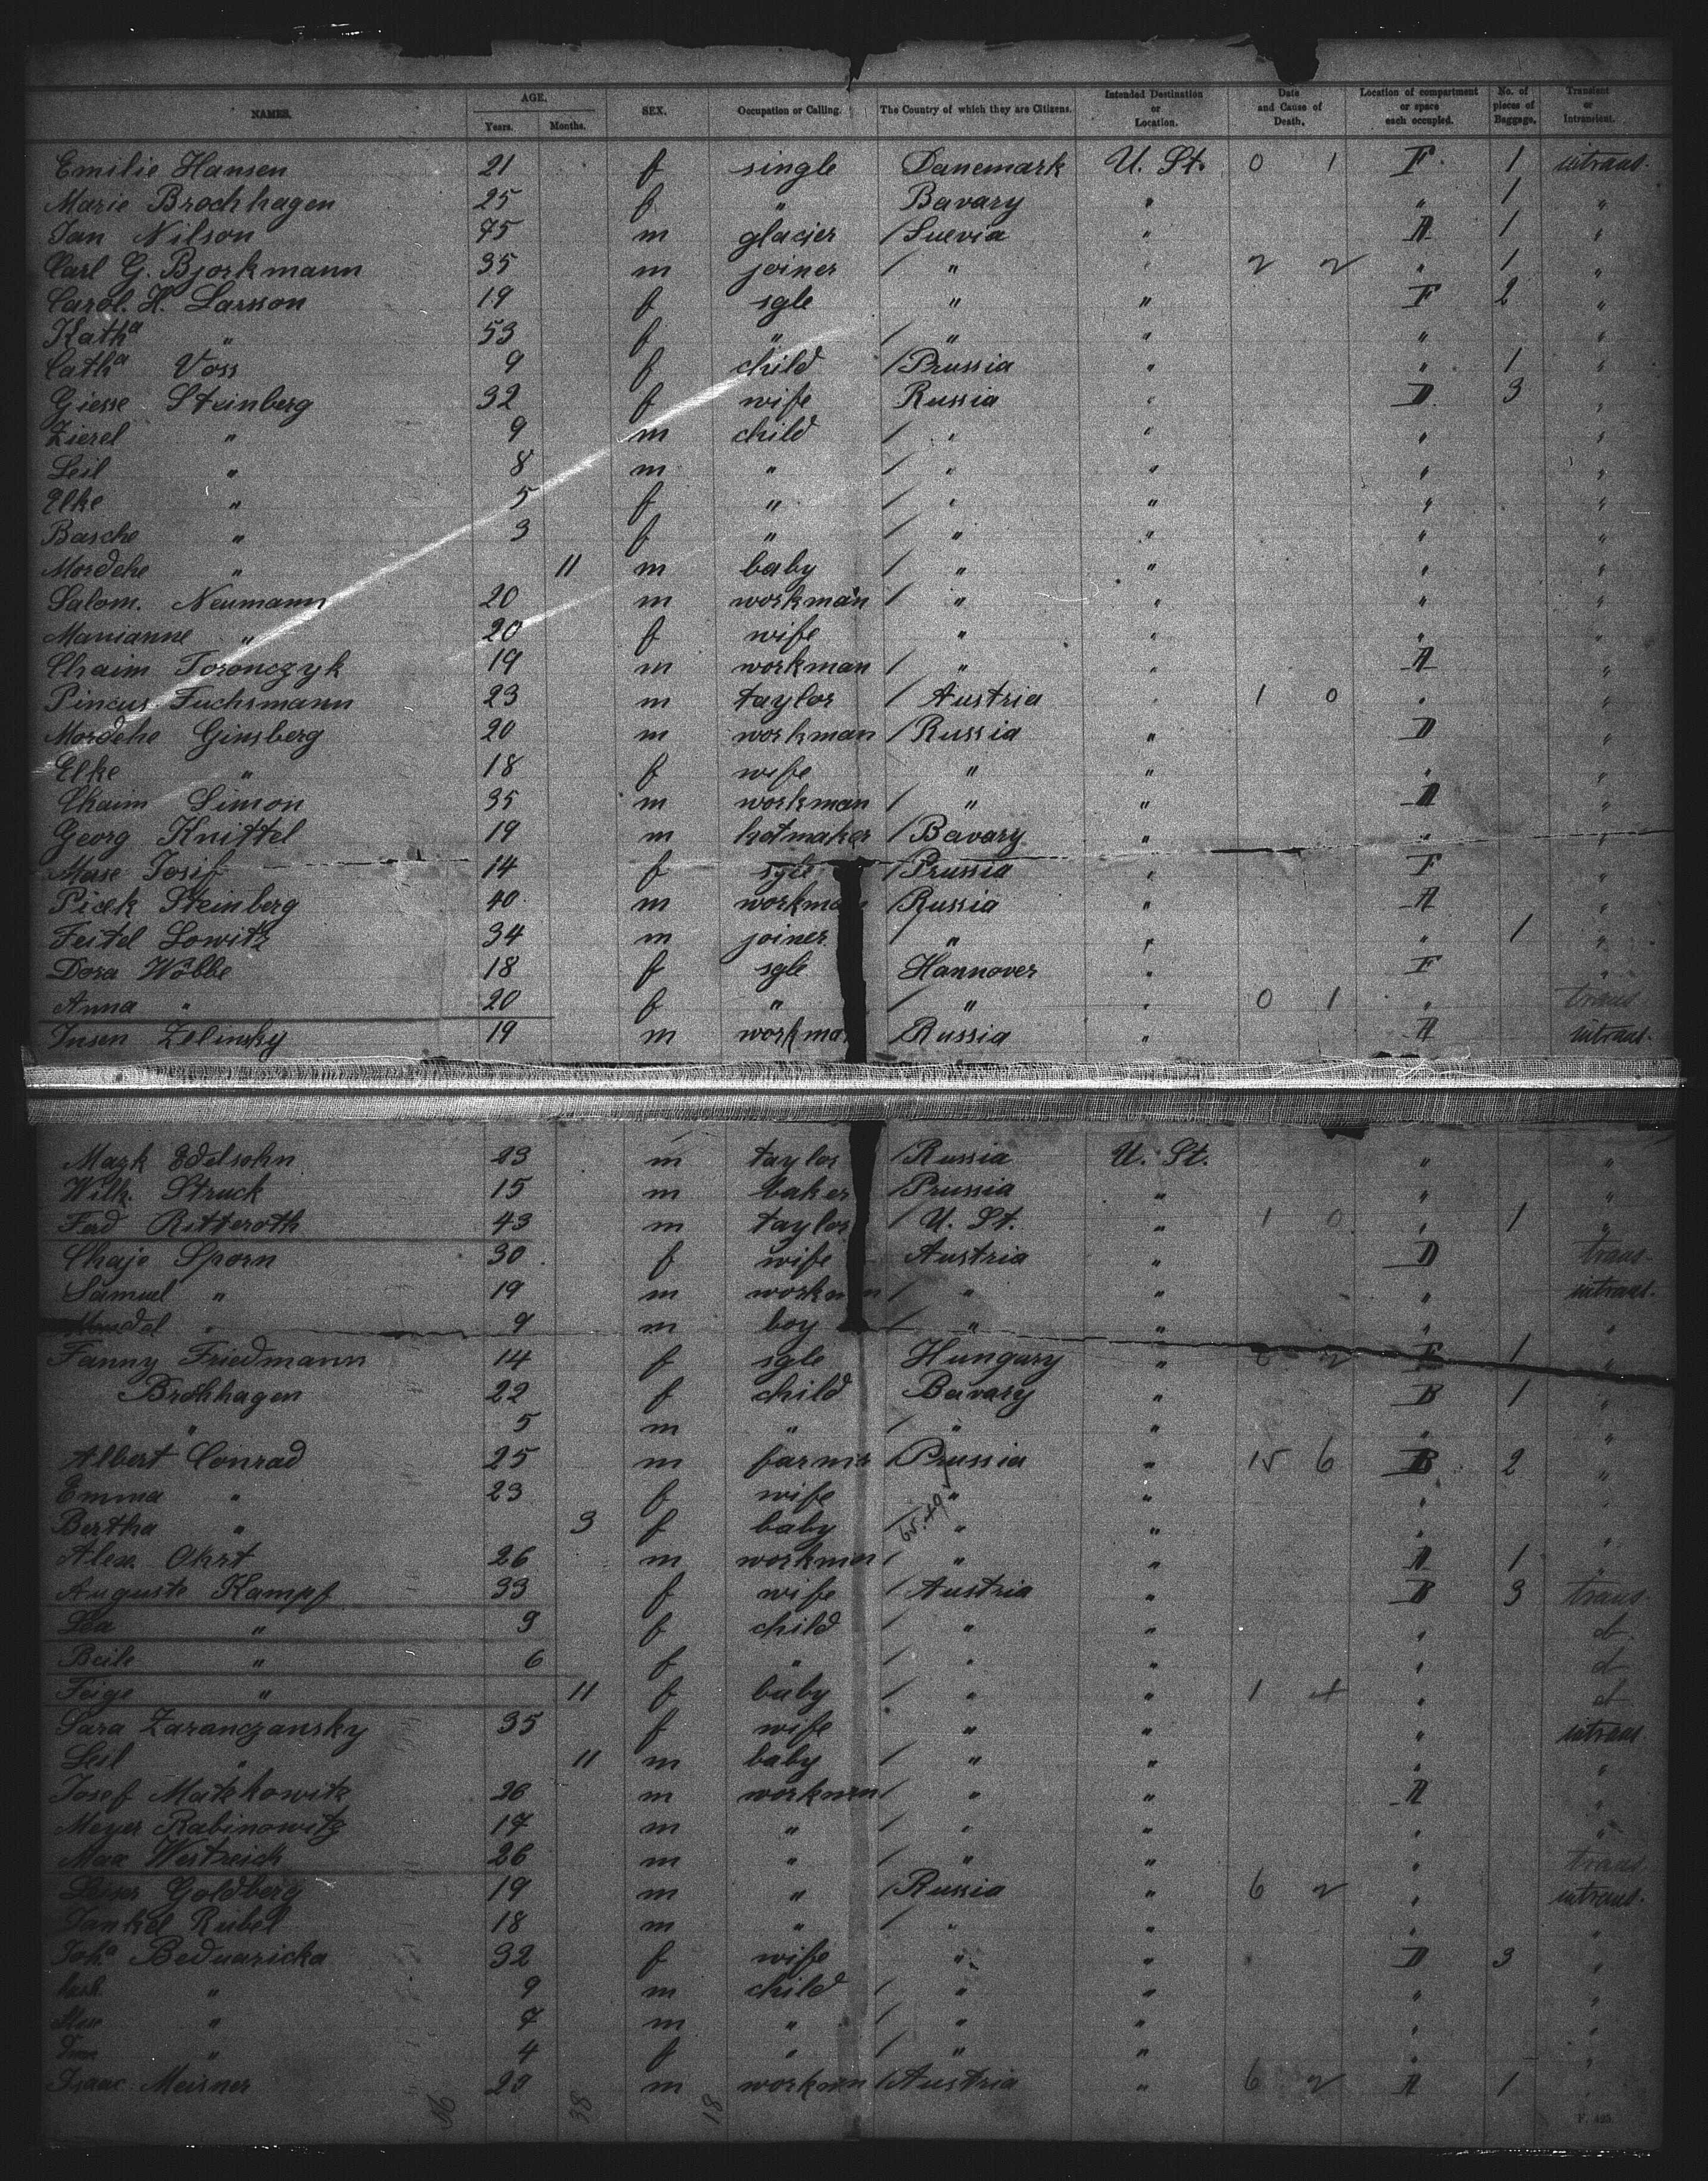 NAMES. AGE. Years. Months. SEX. Occupation or Calling. The Country of which they are Citizens. Intended Destination or Location. Date and Cause of Death. Location of compartment or space each occupied. No. of pieces of Baggage. Transient or Intransient.
Emilie Hansen 21 f single Danemark U. St. 0 1 F 1 intrans.
Marie Brochhagen 25 f " Bavary " " 1 "
Jan Nilson 45 m glacier / Suevia " A 1 "
Carl G. Bjorkmann 35 m joiner / " " 2 2 " 1 "
Carol. H. Larsson 19 f sgle " " F 2 "
Katha " 53 f " / " " " "
Catha Voss 9 f child / Prussia " " 1 "
Giesse Steinberg 32 f wife Russia " D 3 "
Zierel " 9 m child / " " " "
Leil " 8 m " / " " " "
Elke " 5 f " / " " " "
Basche " 3 f " / " " " "
Mordche " 11 m baby / " " " "
Salom. Neumann 20 m workman / " " " "
Marianne " 20 f wife " " " "
Chaim Toronczyk 19 m workman / " " A "
Pincus Fuchsmann 23 m taylor / Austria " 1 0 " "
Mordche Ginsberg 20 m workman / Russia " D "
Elke " 18 f wife " " " "
Chaim Simon 35 m workman / " " A "
Georg Knittel 19 m hatmaker / Bavary " " "
Mase Josif 14 f sgle / Prussia " F "
Picek Steinberg 40 m workma / Russia " A "
Feitel Lowitz 34 m joiner / " " " 1 "
Dora Wöbbe 18 f sgle Hannover " F "
Anna " 20 f " / " " 0 1 " trans
Insen Zelinsky 19 m workma / Russia " A intrans.
Mark Edelsohn 23 m taylor / Russia U. St. " "
Wilh. Struck 15 m baker / Prussia " " "
Ferd Ritteroth 43 m taylor / U. St. " 1 0 " 1 "
Chaje Sporn 30 f wife Austria " D trans.
Samuel " 19 m workman / " " " intrans.
Mendel " 9 m boy / " " " "
Fanny Friedmann 14 f sgle Hungary " 2 F 1 "
Brochhagen 22 f child Bavary " B 1 "
" 5 m " / " " " "
Albert Conrad 25 m farmer / Prussia " 15 6 B 2 "
Emma " 23 f wife " " "
Bertha " 3 f baby / " " " "
Alex. Ohrt 26 m workman / " " A 1 "
Auguste Kampf 33 f wife / Austria " B 3 trans
Lea " 9 f child / " " " d
Beile " 6 f " / " " " d
Feige " 11 f baby / " " 1 4 " d
Sara Zaranczansky 35 f wife " " " intrans
Leil " 11 m baby / " " " "
Josef Matzkowitz 26 m workman / " " A "
Meyer Rabinowitz 17 m " / " " " "
Max Westreich 26 m " / " " " trans
Leiser Goldberg 19 m " / Russia " 6 2 " intrans.
Jankel Rubel 18 m " / " " " "
Joha Beduaricka 32 f wife " " D 3 "
" 9 m child / " " " "
" 7 m " / " " " "
" 4 f " / " " " "
Isaac Meisner 29 m workman / Austria " 6 2 A 1 "
38 18
F. 425.